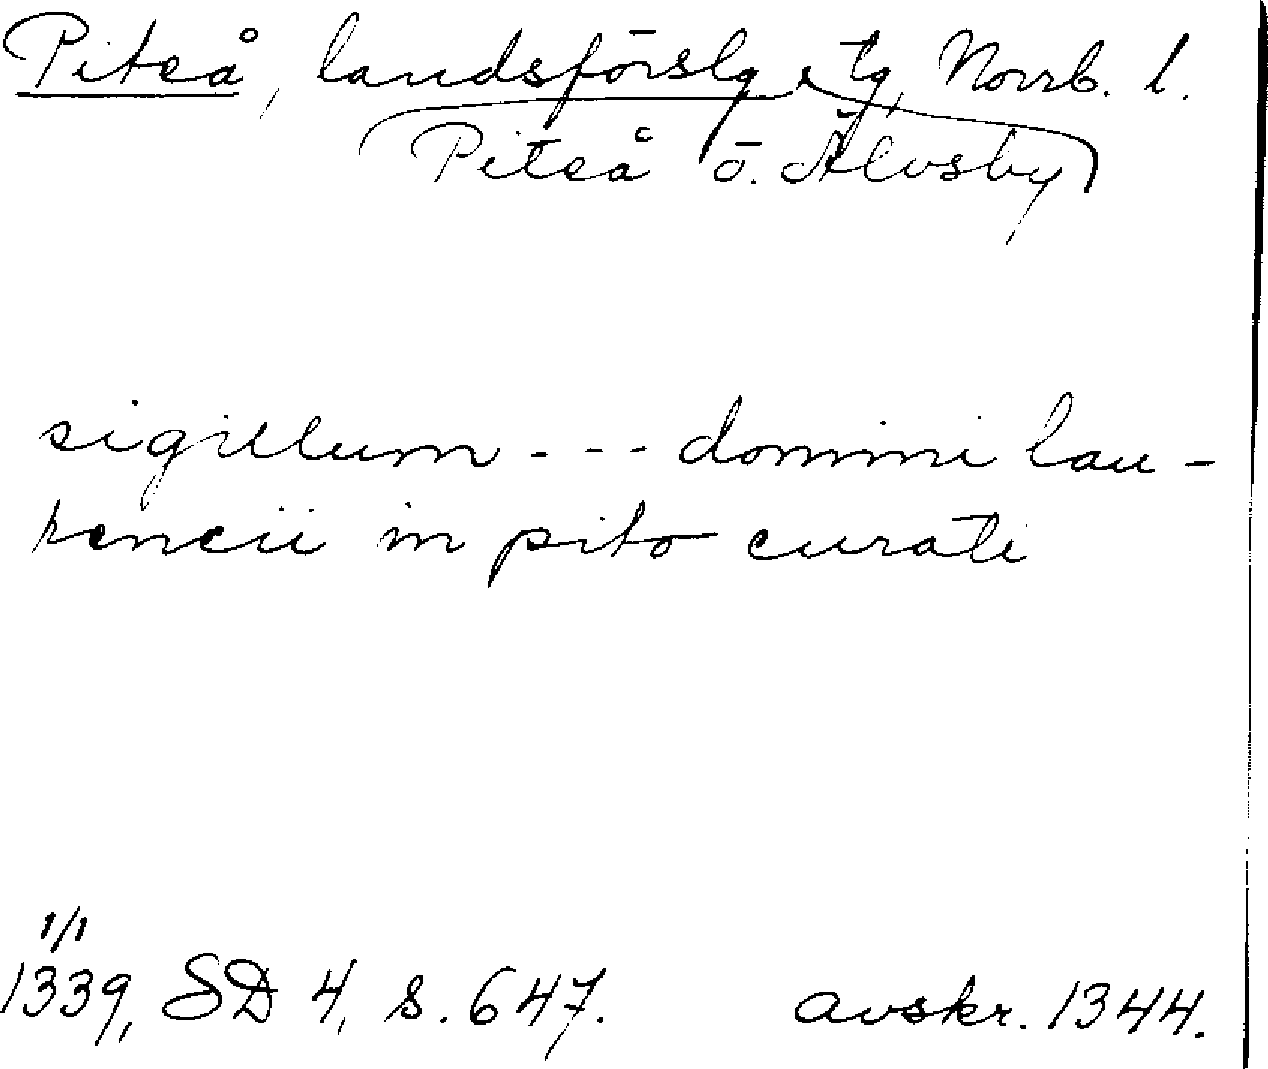 Piteå, landsförslg, tg, Norrb. l.
Piteå o. Älvsby
sigillum - - - domini lau-
rencii in pito curati
1/1
1339, SD 4, s. 647. avskr. 1344.